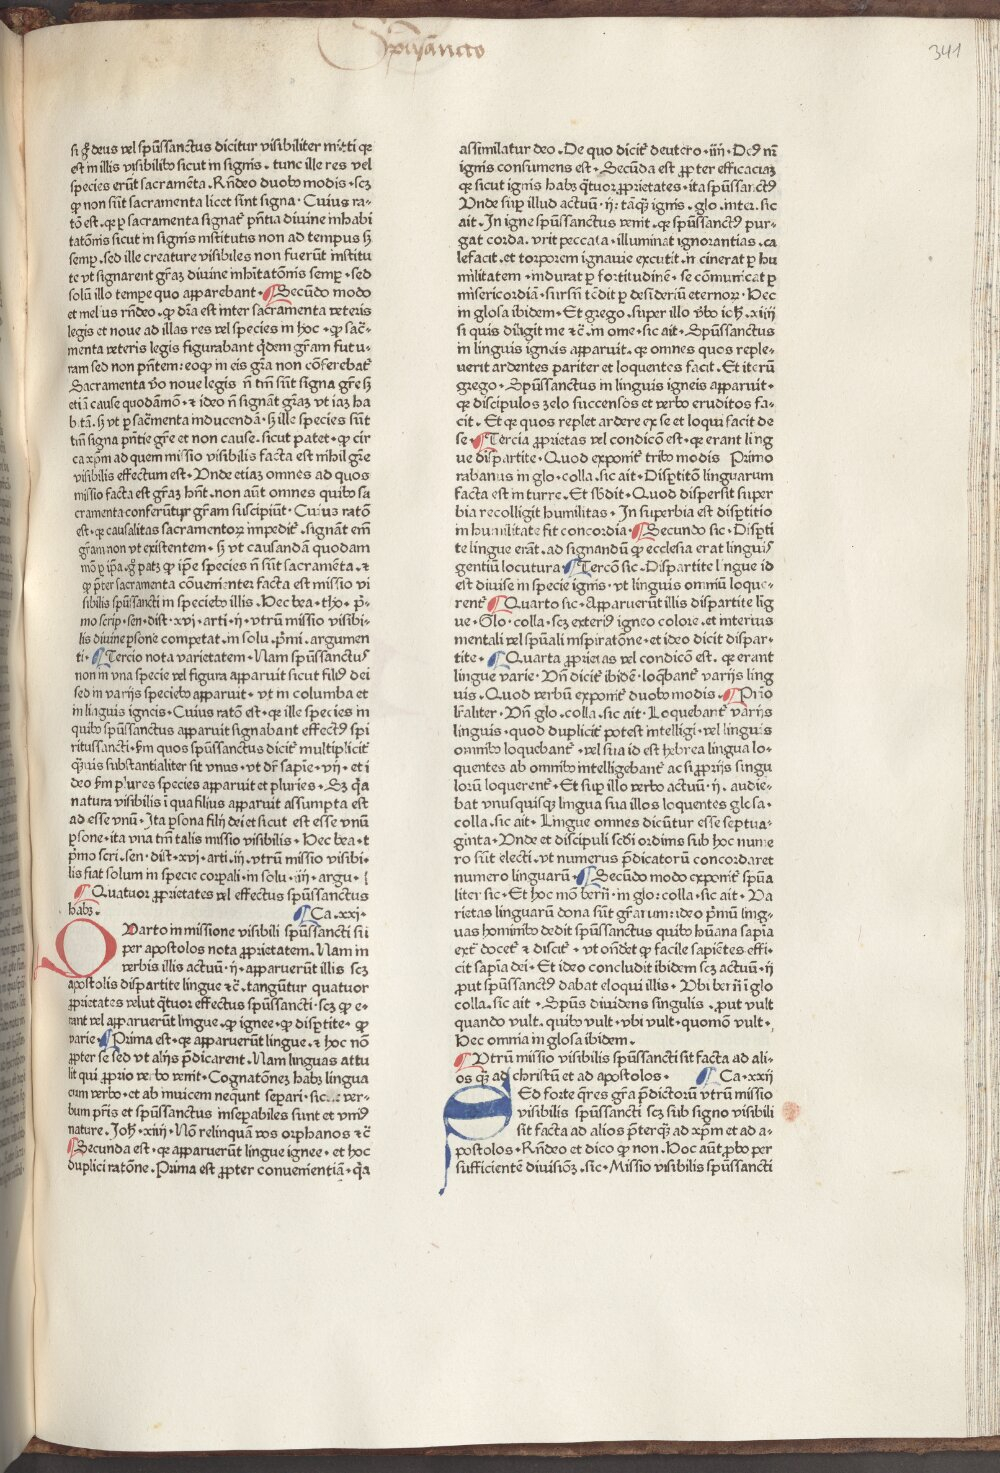 Spūsancto
341
si g̊ deus vel spūssanctus dicitur visibiliter mitti qꝛ
est in illis visibilibꝰ sicut in signis . tunc ille res vel
species erūt sacramēta . Rn̄deo duobꝰ modis . scꝫ
ꝙ non sūt sacramenta licet sint signa . Cuius ra-
tō est . qꝛ ꝑ sacramenta signat̄ pn̄tia diuine inhabi
tatōnis sicut in signis institutis non ad tempus sꝫ
semꝑ . sed ille creature visibiles non fuerūt institu
te vt signarent gr̄aꝫ diuine inhītatōnis semꝑ . sed
solū illo tempe quo apparebant . Secūdo modo
et melius rn̄deo . ꝙ dr̄a est inter sacramenta veteris
legis et noue ad illas res vel species in hoc . ꝙ sac̄-
menta veteris legis figurabant q̄dem gr̄am futu-
ram sed non pn̄tem: eoꝙ in eis gr̄a non cōferebat̄
Sacramenta v̄o noue legis n̄ tm̄ sūt signa gr̄e sꝫ
etiā cause quodāmō . ⁊ ideo n̄ signāt gr̄aꝫ vt iaꝫ ha
bitā . sꝫ vt ꝑ sac̄menta inducendā . sꝫ ille species sūt
tm̄ signa pn̄tie gr̄e et non cause . sicut patet . ꝙ cir
ca xp̄m ad quem missio visibilis facta est nihil gr̄e
visibilis effectum est . Vnde etiaꝫ omnes ad quos
missio facta est gr̄aꝫ hn̄t . non aūt omnes quibꝰ sa
cramenta conferūtur gr̄am suscipiūt . Cuius ratō
est . qꝛ causalitas sacramentoꝝ impedit̄ . signāt em̄
gr̄am non vt existentem . sꝫ vt causandā quodam
mō ꝑ ip̄a . g̊ patꝫ ꝙ ip̄e species n̄ sūt sacramēta . ⁊
ꝙ p̄ter sacramenta cōuenienter facta est missio vi
sibilis spūssancti in speciebꝰ illis . Hec bea . tho . p̄-
mo scrip . sen . dist . xvi . arti . ii . vtrū missio visibi-
lis diuine ꝑsone competat . in solu . pr̄mi . argumen
ti . Tercio nota varietatem . Nam spūssanctus
non in vna specie vel figura apparuit sicut filiꝰ dei
sed in varijs speciebꝰ apparuit . vt in columba et
in linguis igneis . Cuius ratō est . qꝛ ille species in
quibꝰ spūssanctus apparuit signabant effectꝰ spi
ritussancti . sm̄ quos spūssanctus dicit̄ multiplicit̄
qͣ̄uis substantialiter sit vnus . vt dr̄ sapie . vii . et i
deo sm̄ plures species apparuit et pluries . Sꝫ qꝛ
natura visibilis ī qua filius apparuit assumpta est
ad esse vnū . Ita ꝑsona filij dei et sicut est esse vnū
ꝑsone . ita vna tm̄ talis missio visibilis . Hec bea . t
p̄mo scri . sen . dist . xvi . arti . iii . vtrū missio visibi-
lis fiat solum in specie corꝑali . in solu . iiii . argu .
Quatuor ꝓprietates vel effectus spūssanctus
habꝫ . Ca . xxi .
QVarto in missione visibili spūssancti sii
per apostolos nota ꝓprietatem . Nam in
verbis illis actuū . ii . apparuerūt illis scꝫ
apostolis dispartite lingue ⁊c̄ . tangūtur quatuor
ꝓprietates velut q̄tuor effectus spūssancti . scꝫ ꝙ e-
rant vel apparuerūt lingue . ꝙ ignee . ꝙ disꝑtite . ꝙ
varie . Prima est . qꝛ apparuerūt lingue . ⁊ hoc nō
ꝓpter se sed vt alijs p̄dicarent . Nam linguas attu
lit qui ꝓprio verbo venit . Cognatōneꝫ habꝫ lingua
cum verbo . et ab inuicem nequnt seꝑari . sic ver-
bum pr̄is et spūssanctus inseꝑabiles sunt et vniꝰ
nature . Joh̄ . xiiii . Nō relinquā vos orphanos ⁊ c̄
Secunda est . qꝛ apparuerūt lingue ignee . et hoc
duplici ratōne . Prima est ꝓpter conuenientiā . qꝛ
assimilatur deo . De quo dicit̄ deutero . iiii . Deꝰ nr̄
ignis consumens est . Secūda est ꝓpter efficaciaꝫ
qꝛ sicut ignis habꝫ q̄tuor ꝓprietates . ita spūssanctꝰ
Vnde suꝑ illud actuū . ii . tāqͣ̄ ignis . glo . inter . sic
ait . In igne spūssanctus venit . qꝛ spūssanctꝰ pur-
gat corda . vrit peccata . illuminat ignorantias . ca
lefacit . et torporem ignauie excutit . in cinerat ꝑ hu
militatem . indurat ꝑ fortitudinē . se cōmunicat ꝑ
misericordiā . sursū tēdit ꝑ desideriū eternoꝝ . Hec
in glosa ibidem . Et grego . super illo v̄bo ioh̄ . xiiii
si quis diligit me ⁊c̄ . in ome . sic ait . Spūssanctus
in linguis igneis apparuit . qꝛ omnes quos reple-
uerit ardentes pariter et loquentes facit . Et iterū
grego . Spūssanctus in linguis igneis apparuit .
qꝛ discipulos zelo succensos et verbo eruditos fa-
cit . Et qꝛ quos replet ardere ex se et loqui facit de
se . Tercia ꝓprietas vel condicō est . qꝛ erant ling
ue disꝑtite . Quod exponit̄ tribꝰ modis Primo
rabanus in glo . colla . sic ait . Disꝑtitō linguarum
facta est in turre . Et sb̄dit . Quod dispersit super
bia recolligit humilitas . In superbia est disꝑtitio
in humilitate fit concordia . Secundo sic . Disꝑti
te lingue erāt . ad signandū ꝙ ecclesia erat linguis
gentiū locutura . Tercō sic . Dispartite lingue id
est diuise in specie ignis . vt linguis omniū loque-
rent̄ . Quarto sic . Apparuerūt illis dispartite lig
ue . Glo . colla . scꝫ exteriꝰ igneo colore . et interius
mentali vel spūali inspiratōne . et ideo dicit dispar-
tite . Quarta ꝓprietas vel condicō est . qꝛ erant
lingue varie . Vn̄ dicit̄ ibidē . loq̄bant̄ varijs ling
uis . Quod verbū exponit̄ duobꝰ modis . Prīo
lr̄aliter . Vn̄ glo . colla . sic ait . Loquebant̄ varijs
linguis . quod duplicit̄ potest intelligi . vel linguis
omnibꝰ loquebant̄ . vel sua id est hebrea lingua lo-
quentes ab omnibꝰ intelligebant̄ ac si ꝓprijs singu
lorū loquerent̄ . Et suꝑ illo verbo actuū . ii . audie-
bat vnusquisqꝫ lingua sua illos loquentes glosa .
colla . sic ait . Lingue omnes dicūtur esse septua-
ginta . Vnde et discipuli scd̄i ordinis sub hoc nume
ro sūnt electi . vt numerus p̄dicatorū concordaret
numero linguarū . Secūdo modo exponit̄ spūa
liter sic . Et hoc mō bern̄ . in glo : colla . sic ait . Va
rietas linguarū dona sūt gr̄arum : ideo p̄mū ling-
uas hominibꝰ dedit spūssanctus quibꝰ hūana sapia
ext̄ docet̄ ⁊ discit̄ . vt on̄det̄ ꝙ facile sapiētes effi-
cit sapīa dei . Et ideo concludit ibidem scꝫ actuū . ii
ꝓut spūssanctꝰ dabat eloqui illis . Vbi bern̄ ī glo
colla . sic ait . Spūs diuidens singulis . ꝓut vult
quando vult . quibꝰ vult . vbi vult . quomō vult .
Hec omnia in glosa ibidem .
Vtrū missio visibilis spūssancti sit facta ad ali-
os qͣ̄ ad christū et ad apostolos . Ca . xxii
SEd forte q̄res gr̄a p̄dictorū vtrū missio
visibilis spūssancti scꝫ sub signo visibili
sit facta ad alios p̄terqͣ̄ ad xp̄m et ad a-
postolos . Rn̄deo et dico ꝙ non . Hoc aūt ꝓbo per
sufficientē diuisiōꝫ . sic . Missio visibilis spūssancti